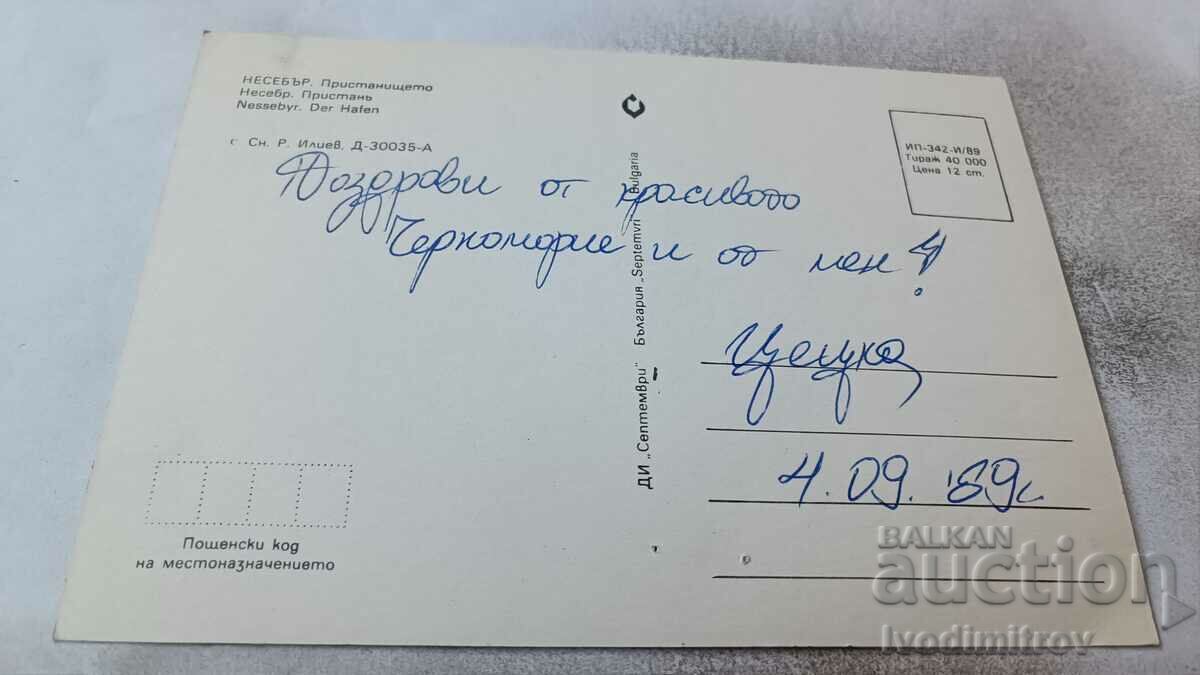 НЕСЕБЪР. Пристанището
Несебр. Пристань
Nessebyr. Der Hafen
Сн. Р. Илиев, Д-30035-А
ИП-342-И/89
Тираж 40 000
Цена 12 ст.
Поздрави от красивото
Черноморие и от мен!
Цецка
4.09.'89г.
ДИ „Септември" България „Septemvri" Bulgaria
Пощенски код
на местоназначението
BALKAN
auction
Ivodimitrov